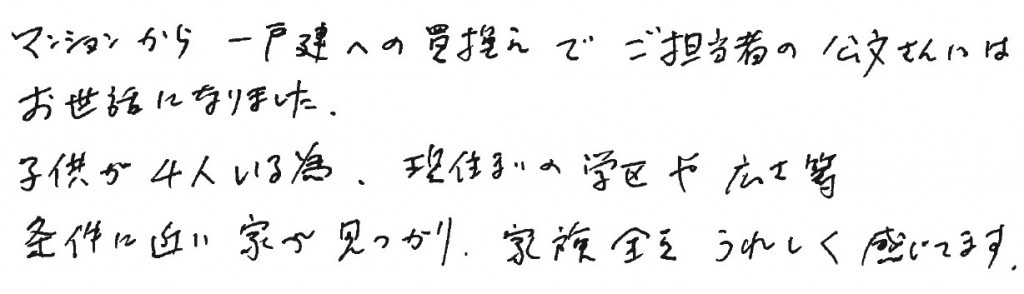 マンションから一戸建への買換えでご担当者の公文さんには
お世話になりました.
子供が4人いる為、現住まいの学区や広さ等
条件に近い家が見つかり、家族全員うれしく感じてます.